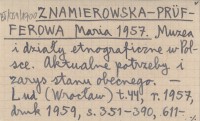 ZNAMIEROWSKA-PRÜF-
FEROWA Maria 1957. Muzea
i działy etnograficzne w Pol-
sce. Aktualne potrzeby i
zarys stanu obecnego. —
Lud (Wrocław) t.44, r. 1957,
druk 1959, s. 351-390, 611-